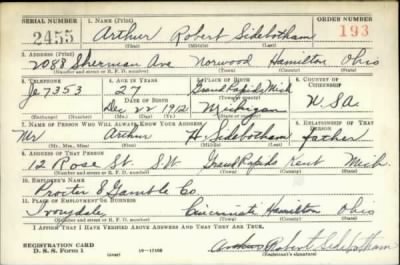 SERIAL NUMBER 1. NAME (Print) ORDER NUMBER
2455 Arthur Robert Sidebotham 193
(First) (Middle) (Last)
2. ADDRESS (Print)
2088 Sherman Ave Norwood Hamilton Ohio
(Number and street or R. F. D. number) (Town) (County) (State)
3. TELEPHONE 4. AGE IN YEARS 5. PLACE OF BIRTH 6. COUNTRY OF CITIZENSHIP
Je 7353 27 Grand Rapids Mich
DATE OF BIRTH
Dec 22 1912 Michigan U.S.A.
(Exchange) (Number) (Mo.) (Day) (Yr.) (State or country)
7. NAME OF PERSON WHO WILL ALWAYS KNOW YOUR ADDRESS RELATIONSHIP OF THAT PERSON
Mr Arthur H. Sidebotham father
(Mr., Mrs., Miss) (First) (Middle) (Last)
ADDRESS OF THAT PERSON
12 Rose St. SW Grand Rapids Kent Mich
(Number and street or R. F. D. number) (Town) (County) (State)
10. EMPLOYER'S NAME
Procter & Gamble Co.
11. PLACE OF EMPLOYMENT OR BUSINESS
Ivorydale Cincinnati Hamilton Ohio
(Number and street or R. F. D. number) (Town) (County) (State)
I AFFIRM THAT I HAVE VERIFIED ABOVE ANSWERS AND THAT THEY ARE TRUE.
REGISTRATION CARD
D. S. S. Form 1
Arthur Robert Sidebotham
(Registrant's signature)